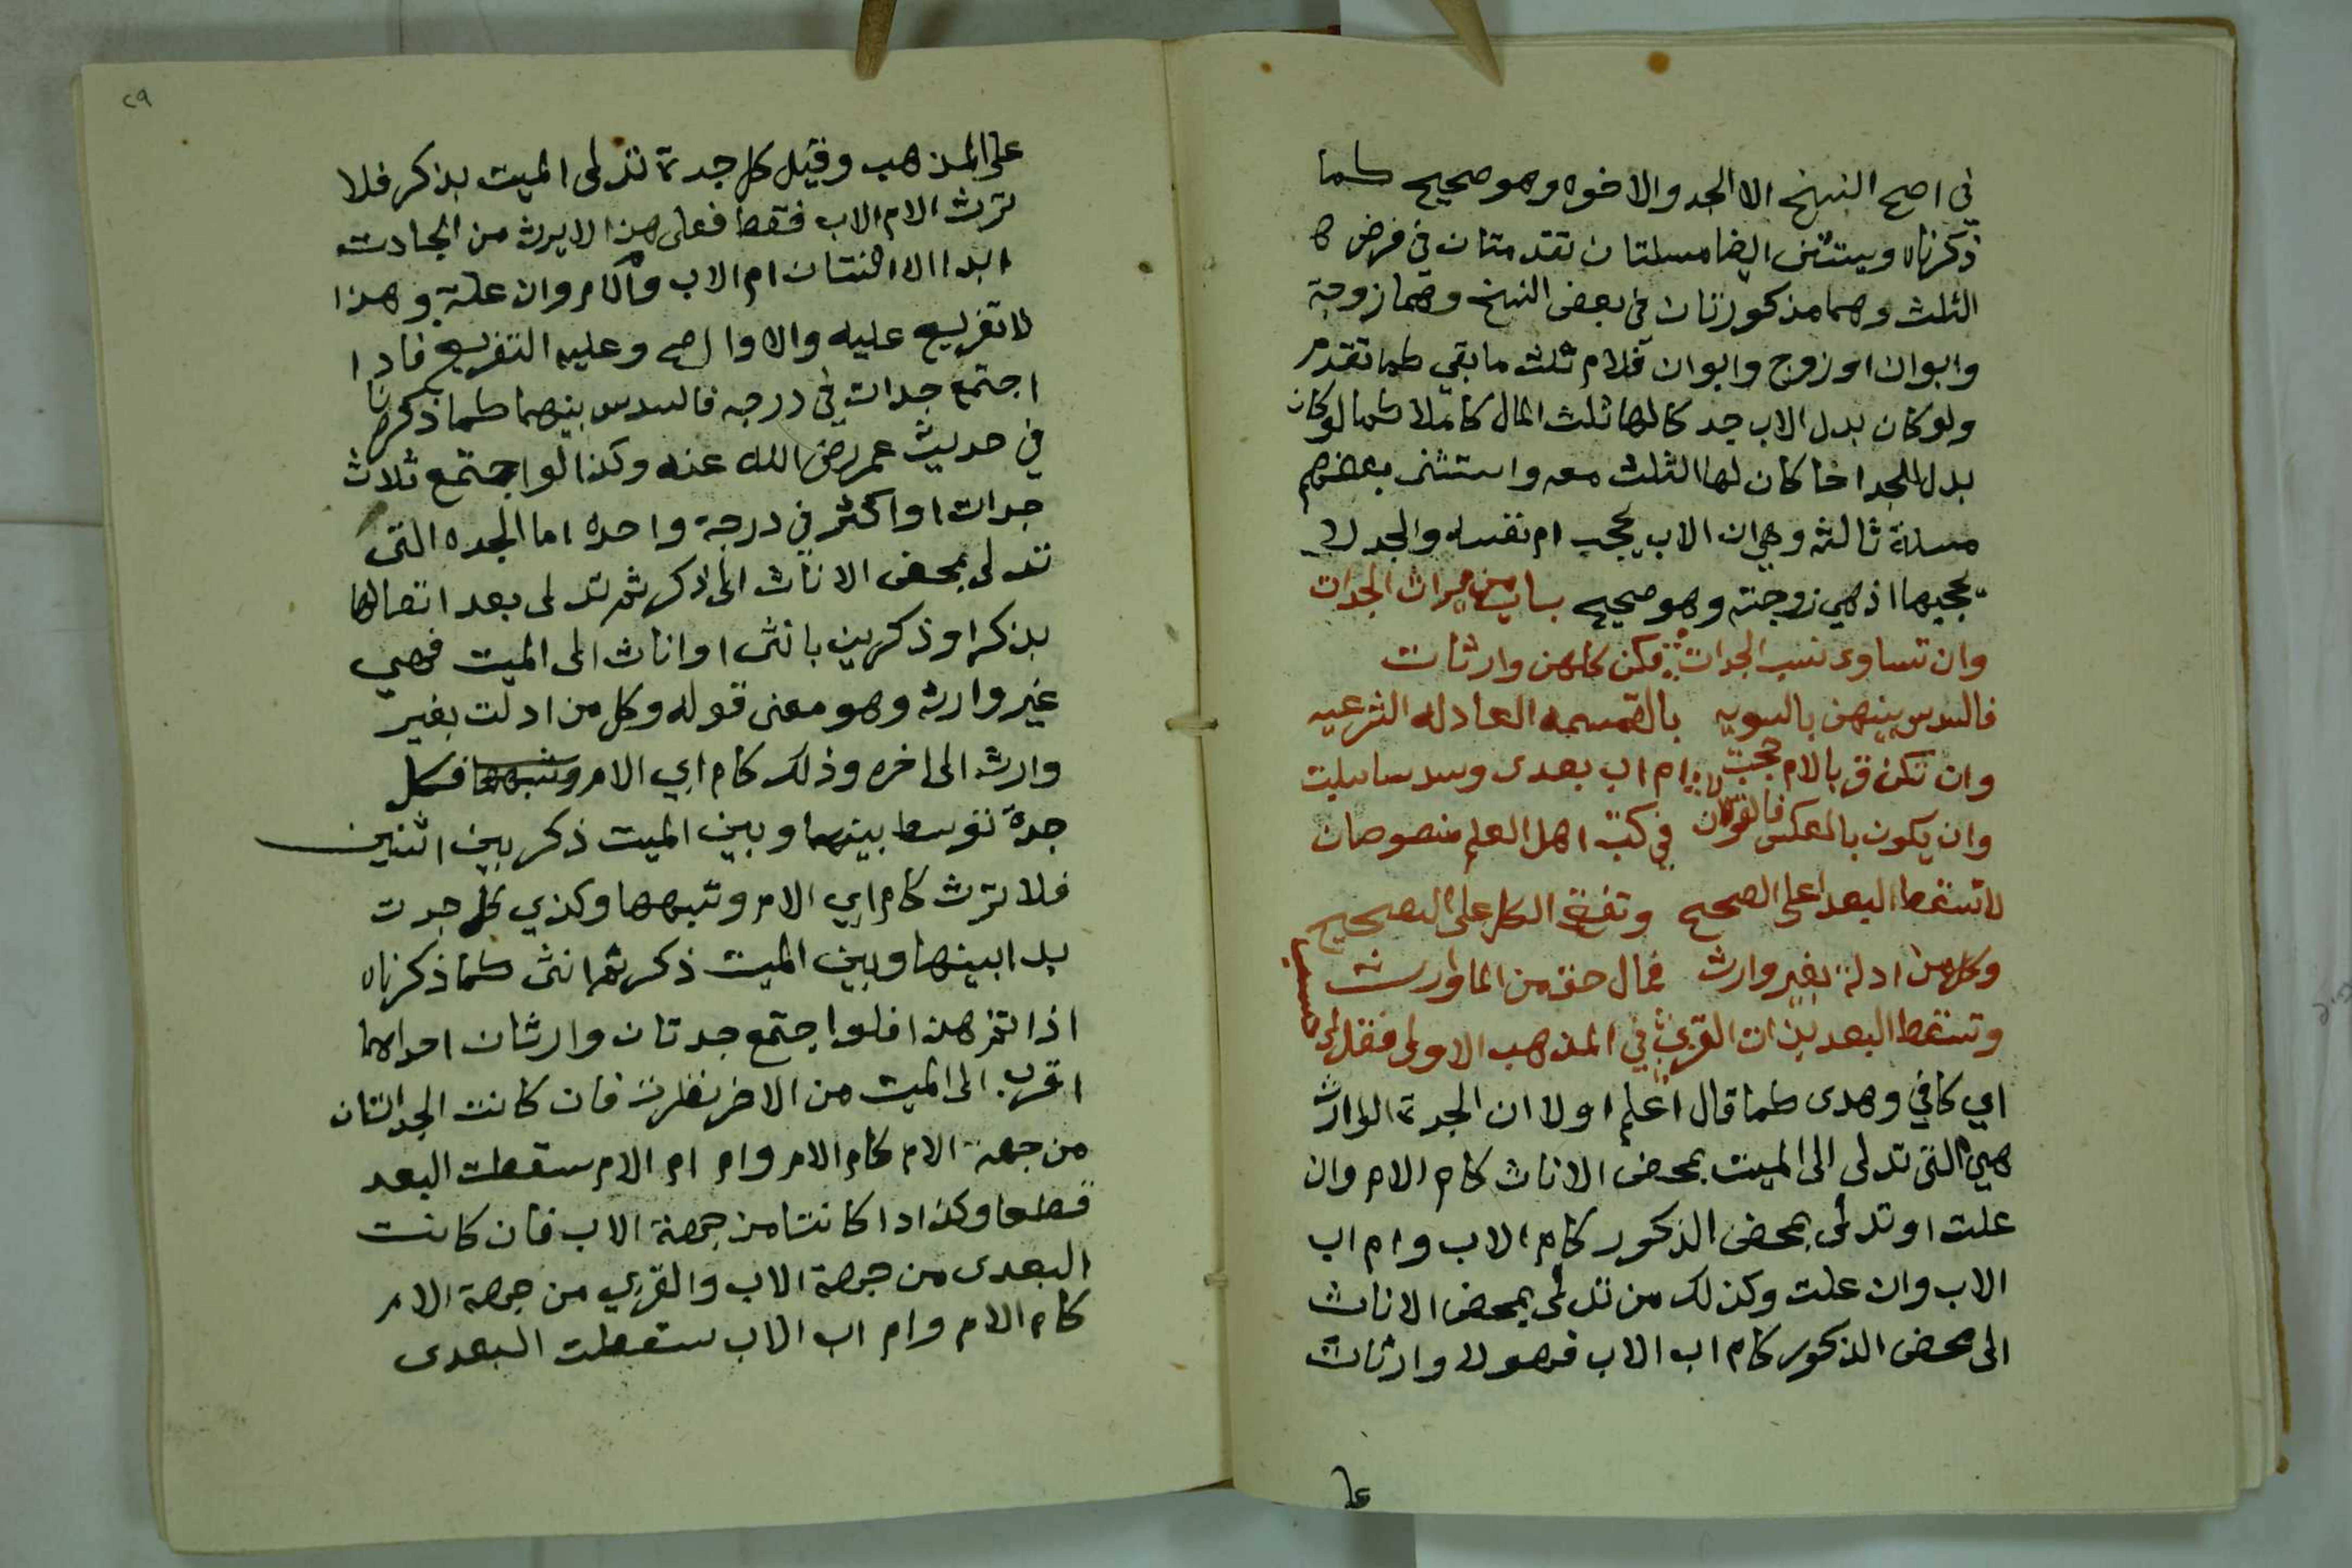 في اصح النسخ الا الجد والاخوه وهو صحيح كما
ذكرناه ويستثنى ايضا مسلتان تقدمتان في فرض
الثلث وهما مذكورتان في بعض النسخ وهما زوجة
وابوان او زوج وابوان فللام ثلث ما بقي كما تقدم
ولو كان بدل الاب جد كا لها ثلث المال كاملا كما لو كان
بدل الجد اخا كان لها الثلث معه واستثنى بعضهم
مسلة ثالثه وهي ان الاب يحجب ام نفسه والجد لا
يحجبها اذ هي زوجته وهو صحيح باب ميراث الجدات
وان تساوى نسب الجدات فكن كلهن وارثات
فالسدس بينهن بالسويه بالقسمه العادله الشرعيه
وان تكن قربا لام حجبت ام اب بعدى وسدسا سلبت
وان يكون بالعكس فالقولان في كتب اهل العلم منصوصان
لا تسقط البعدا على الصحيح وتفق الكل على التصحيح
وكل من ادلة بغير وارث فما له حق من الموارث
وتسقط البعد بذات القرب في المذهب الاولى فقل لي حسبي
اي كافي وهدى كما قال اعلم اولا ان الجدة الوارثة
هي التي تدلى الى الميت بمحض الاناث كام الام وان
علت او تدلى بمحض الذكور كام الاب وام اب
الاب وان علت وكذلك من تدلى بمحض الاناث
الى محض الذكور كام اب الاب فهولا وارثات
على
٢٩
على المذهب وقيل كل جدة تدلى الميت بذكر فلا
ترث الا ام الاب فقط فعلى هذا لا يرث من الجدات
ابدا الا اثنتان ام الاب وام الام وان علة وهذا
لا تفريع عليه والاول اصح وعليه التفريع فاذا
اجتمع جدات في درجه فالسدس بينهما كما ذكرنا
في حديث عمر رضي الله عنه وكذا لو اجتمع ثلاث
جدات او اكثر في درجة واحده اما الجده التى
تدلى بمحض الاناث الى ذكر ثم تدلى بعد اتصالها
بذكر او ذكرين بانثى او اناث الى الميت فهي
غير وارثه وهو معنى قوله وكل من ادلت بغير
وارث الى اخره وذلك كام ابي الام وشبهها فكل
جدة توسط بينها وبين الميت ذكر بين اثنين
فلا ترث كام ابي الام وشبهها وكذي كل جدت
بدا بينها وبين الميت ذكر ثم انثى كما ذكرناه
اذا تقرر هذا فلو اجتمع جدتان وارثان احداهما
اقرب الى الميت من الاخر نظرت فان كانت الجداتان
من جهة الام كام الام وام ام الام سقطت البعد
قطعا وكذ ادا كانتا من جهة الاب فان كانت
البعدى من جهة الاب والقربي من جهة الام
كام الام وام اب الاب سقطت البعدى